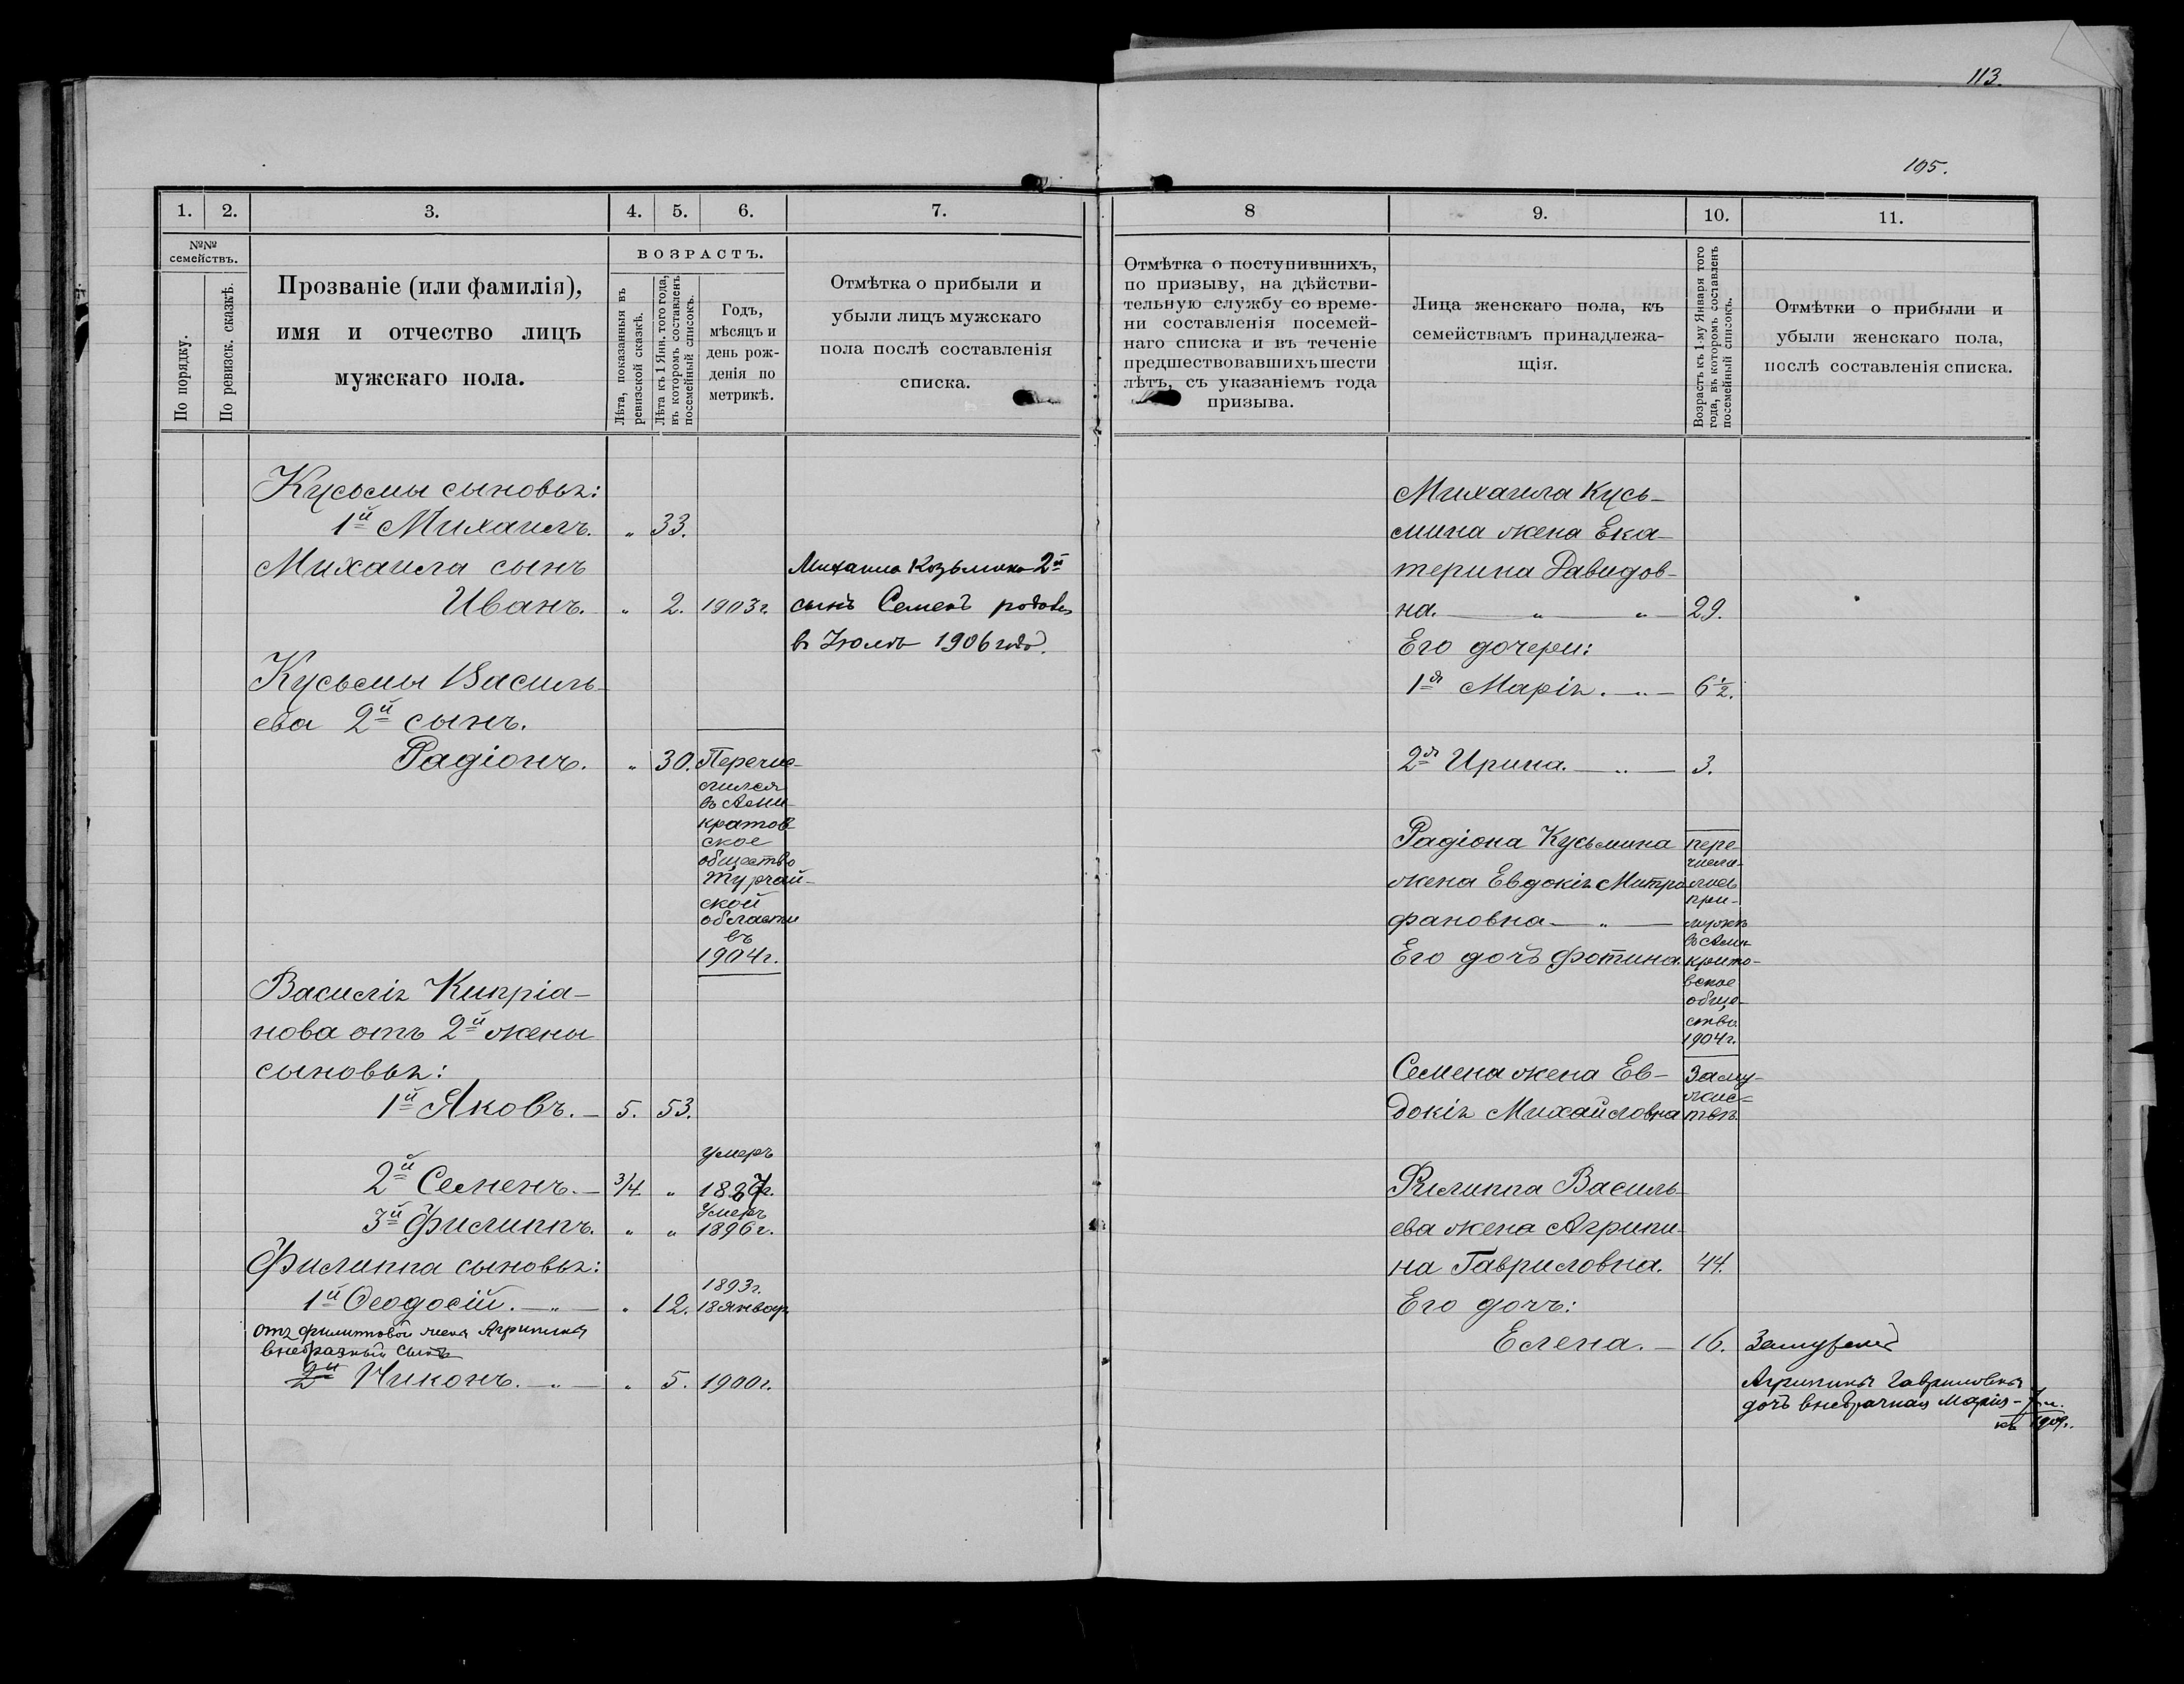 113.
195.
1. 2. 3. 4. 5. 6. 7.
№№ семействъ.
По порядку.
По ревизск. сказкѣ.
Прозваніе (или фамилія),
имя и отчество лицъ
мужскаго пола.
ВОЗРАСТЪ.
Лѣта, показанныя въ
ревизской сказкѣ.
Лѣта къ 1 Янв. того года,
въ которомъ составленъ
посемейный списокъ.
Годъ,
мѣсяцъ и
день рож-
денія по
метрикѣ.
Отмѣтка о прибыли и
убыли лицъ мужскаго
пола послѣ составленія
списка.
Кусьмы сыновья:
1й Михаилъ. " 33.
Михаила сынъ
Иванъ. " 2. 1903г.
Михаила Козьмина 2й
сынъ Семенъ родовъ
въ Іюлѣ 1906 года.
Кусьмы Василь-
ева 2й сынъ.
Радіонъ. " 30.
Перечис-
лился
въ Асни-
кратов
ское
общество
Тургай-
ской
области
въ
1904г.
Василія Кипріа-
нова отъ 2й жены
сыновья:
1й Яковъ. — 5. 53.
умеръ
2й Семенъ. — 3/4. " 1887г.
Умеръ
3й Филиппъ. " " 1896г.
Филиппа сыновья:
1893г.
1й Ѳеодосій. — " — " 12. 18 январ
отъ Филипповой жены Агрипины
внебрачный сынъ
2й Никонъ. — " — " 5. 1900г.
8 9. 10. 11.
Отмѣтка о поступившихъ,
по призыву, на дѣйстви-
тельную службу со време-
ни составленія посемей-
наго списка и въ теченіе
предшествовавшихъ шести
лѣтъ, съ указаніемъ года
призыва.
Лица женскаго пола, къ
семействамъ принадлежа-
щія.
Возрастъ къ 1-му Января того
года, въ которомъ составленъ
посемейный списокъ.
Отмѣтки о прибыли и
убыли женскаго пола,
послѣ составленія списка.
Михаила Кусь-
мина жена Ека-
терина Давидов-
на. — " — " — 29.
Его дочери:
1я Марія. — " — 6½.
2я Ирина. — " — 3.
Радіона Кусьмина
жена Евдокія Митро
фановна — " —
Его дочь Фотина.
пере
числи-
лась
при-
мужѣ
въ Асни-
крито-
вское
обще-
ство
1904г.
Семена жена Ев-
докія Михайловна
Заму-
жес-
твѣ.
Филиппа Василь-
ева жена Агрипи-
на Гавриловна. 44.
Его дочь:
Елена. — 16. Замужемъ
Агрипины Гавриловны
дочь внебрачная Марія — 7 л.
къ 1909г.